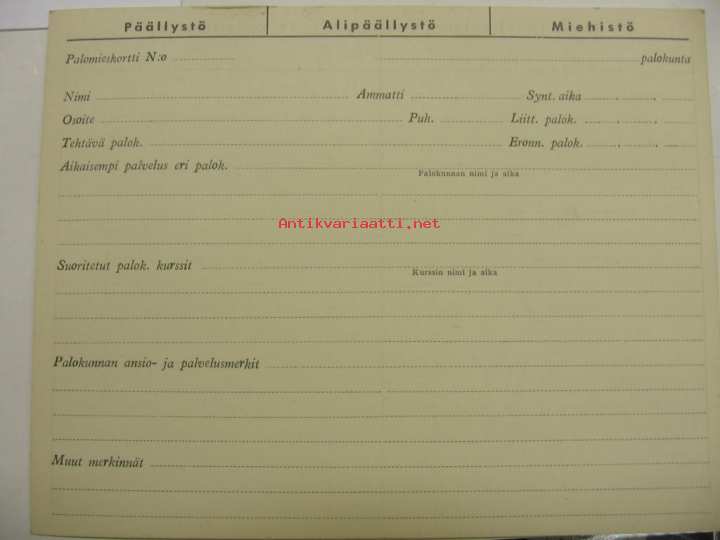 Päällystö Alipäällystö Miehistö
Palomieskortti N:o palokunta
Nimi Ammatti Synt. aika
Osoite Puh. Liitt. palok.
Tehtävä palok. Eronn. palok.
Aikaisempi palvelus eri palok.
Palokunnan nimi ja aika
Antikvariaatti.net
Suoritetut palok. kurssit
Kurssin nimi ja aika
Palokunnan ansio- ja palvelusmerkit
Muut merkinnät